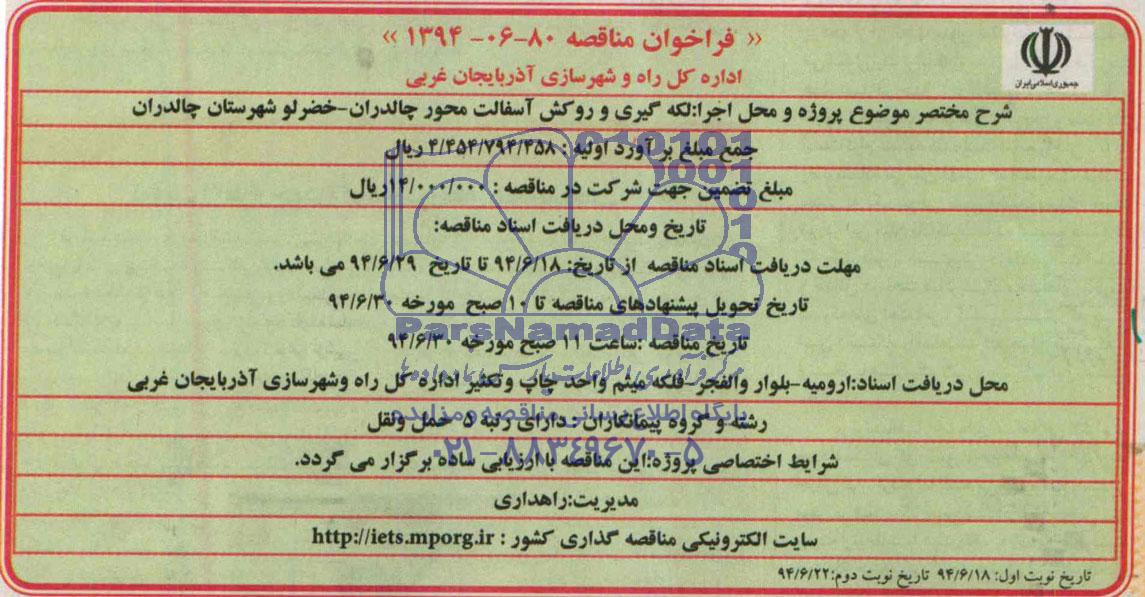 « فراخوان مناقصه ۸۰-۰۶- ۱۳۹۴ »
جمهوری اسلامی ایران
اداره کل راه و شهرسازی آذربایجان غربی
شرح مختصر موضوع پروژه و محل اجرا:لکه گیری و روکش آسفالت محور چالدران-خضرلو شهرستان چالدران
جمع مبلغ بر آورد اولیه : ۴/۴۵۴/۷۹۴/۴۵۸ ریال
مبلغ تضمین جهت شرکت در مناقصه : ۱۴/۰۰۰/۰۰۰ریال
تاریخ ومحل دریافت اسناد مناقصه:
مهلت دریافت اسناد مناقصه از تاریخ: ۹۴/۶/۱۸ تا تاریخ ۹۴/۶/۲۹ می باشد.
تاریخ تحویل پیشنهادهای مناقصه تا ۱۰ صبح مورخه ۹۴/۶/۳۰
ParsNamadData
تاریخ مناقصه :ساعت ۱۱ صبح مورخه ۹۴/۶/۳۰
محل دریافت اسناد:ارومیه-بلوار والفجر-فلکه میثم واحد چاپ وتکثیر اداره کل راه وشهرسازی آذربایجان غربی
پایگاه اطلاع رسانی مناقصه و مزایده
رشته و گروه پیمانکاران : دارای رتبه ۵ حمل ونقل
۰۲۱-۸۸۳۴۹۶۷۰-۵
شرایط اختصاصی پروژه:این مناقصه با ارزیابی ساده برگزار می گردد.
مدیریت:راهداری
سایت الکترونیکی مناقصه گذاری کشور : http://iets.mporg.ir
تاریخ نوبت اول: ۹۴/۶/۱۸ تاریخ نوبت دوم:۹۴/۶/۲۲